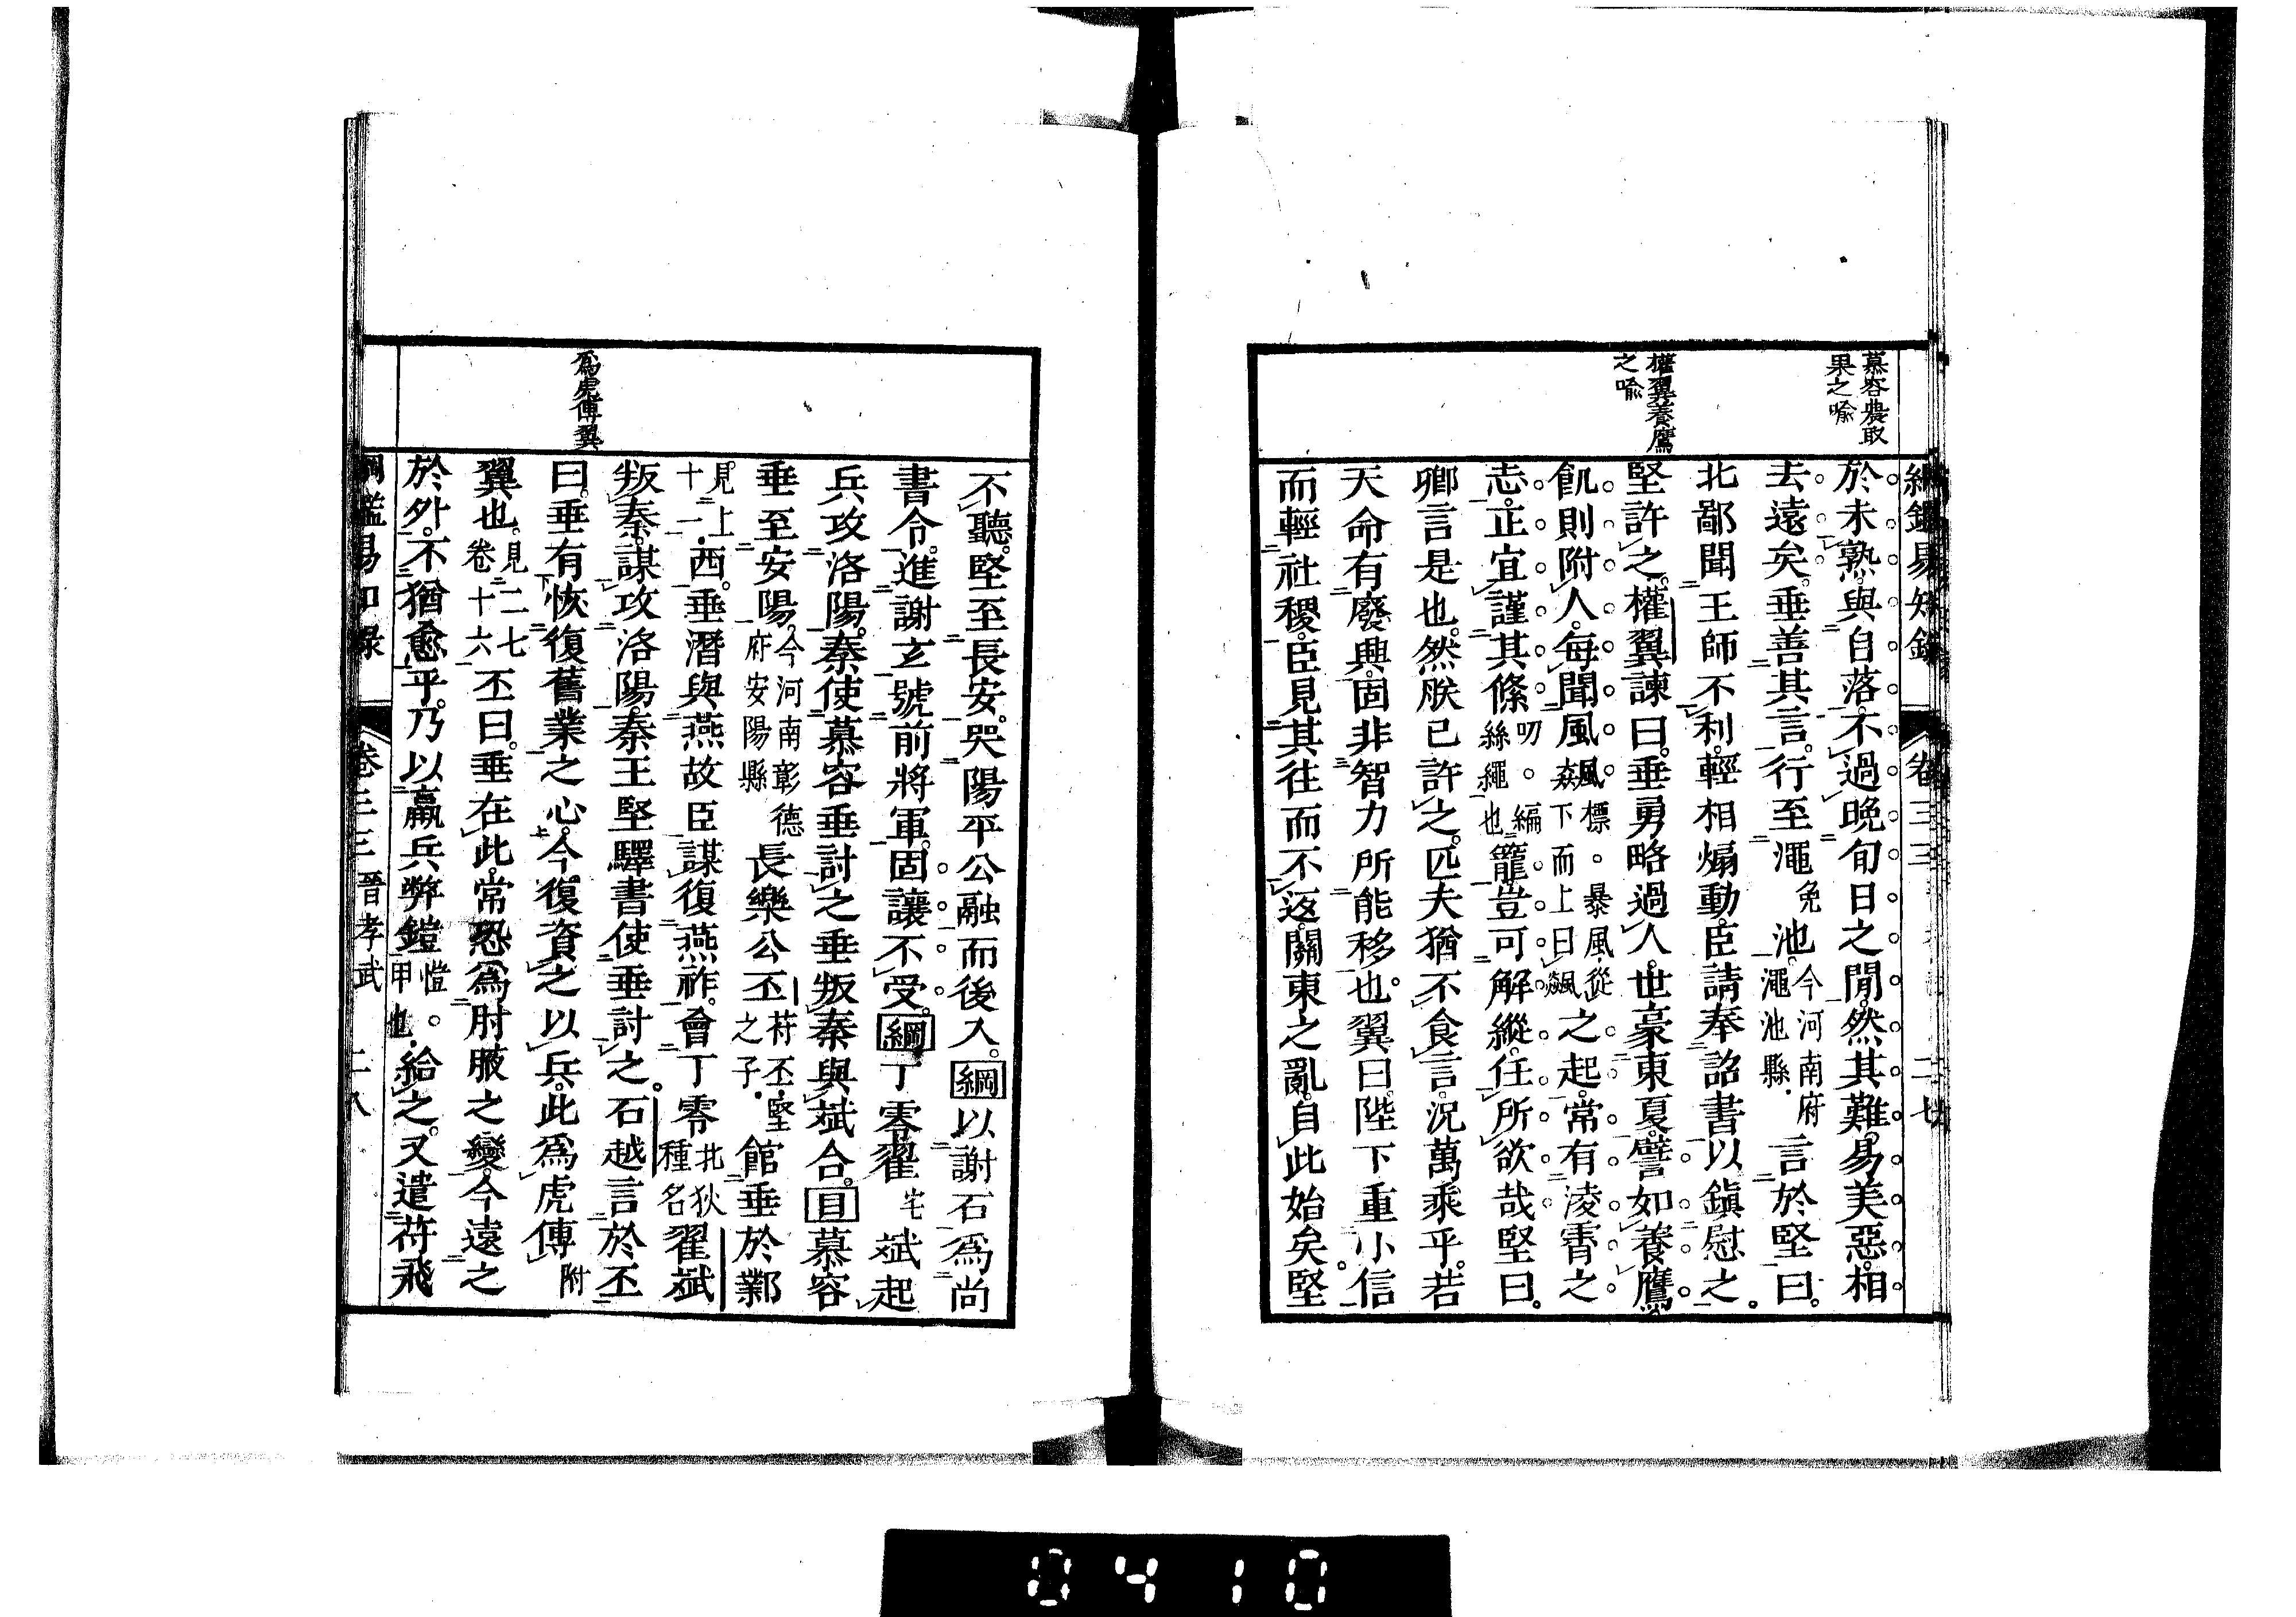 綱鑑易知錄 卷三三 二七
慕容農取
果之喻
權翼養鷹
之喻
於未熟與自落不過晚旬日之閒然其難易美惡相
去遠矣垂善其言行至澠免池今河南府澠池縣言於堅曰
北鄙聞王師不利輕相煽動臣請奉詔書以鎭慰之
堅許之權翼諫曰垂勇略過人世豪東夏譬如養鷹
飢則附人每聞風飆標。暴風從下而上曰飆之起常有淩霄之
志正宜謹其絛叨。編絲繩也籠豈可解縱任所欲哉堅曰
卿言是也然朕已許之匹夫猶不食言況萬乘乎若
天命有廢興固非智力所能移也翼曰陛下重小信
而輕社稷臣見其往而不返關東之亂自此始矣堅
不聽堅至長安哭陽平公融而後入綱以謝石爲尚
書令進謝玄號前將軍固讓不受綱丁零翟宅斌起
兵攻洛陽秦使慕容垂討之垂叛秦與斌合目慕容
垂至安陽今河南彰德府安陽縣長樂公丕苻丕堅之子館垂於鄴
見上十一西垂潛與燕故臣謀復燕祚會丁零北狄種名翟斌
叛秦謀攻洛陽秦王堅驛書使垂討之石越言於丕
曰垂有恢復舊業之心今復資之以兵此爲虎傅附
翼也見二七卷十六丕曰垂在此常恐爲肘腋之變今遠之
於外不猶愈乎乃以羸兵弊鎧愷。甲也給之又遣苻飛
爲虎傅翼
綱鑑易知錄 卷三三 晉孝武 二八
0410